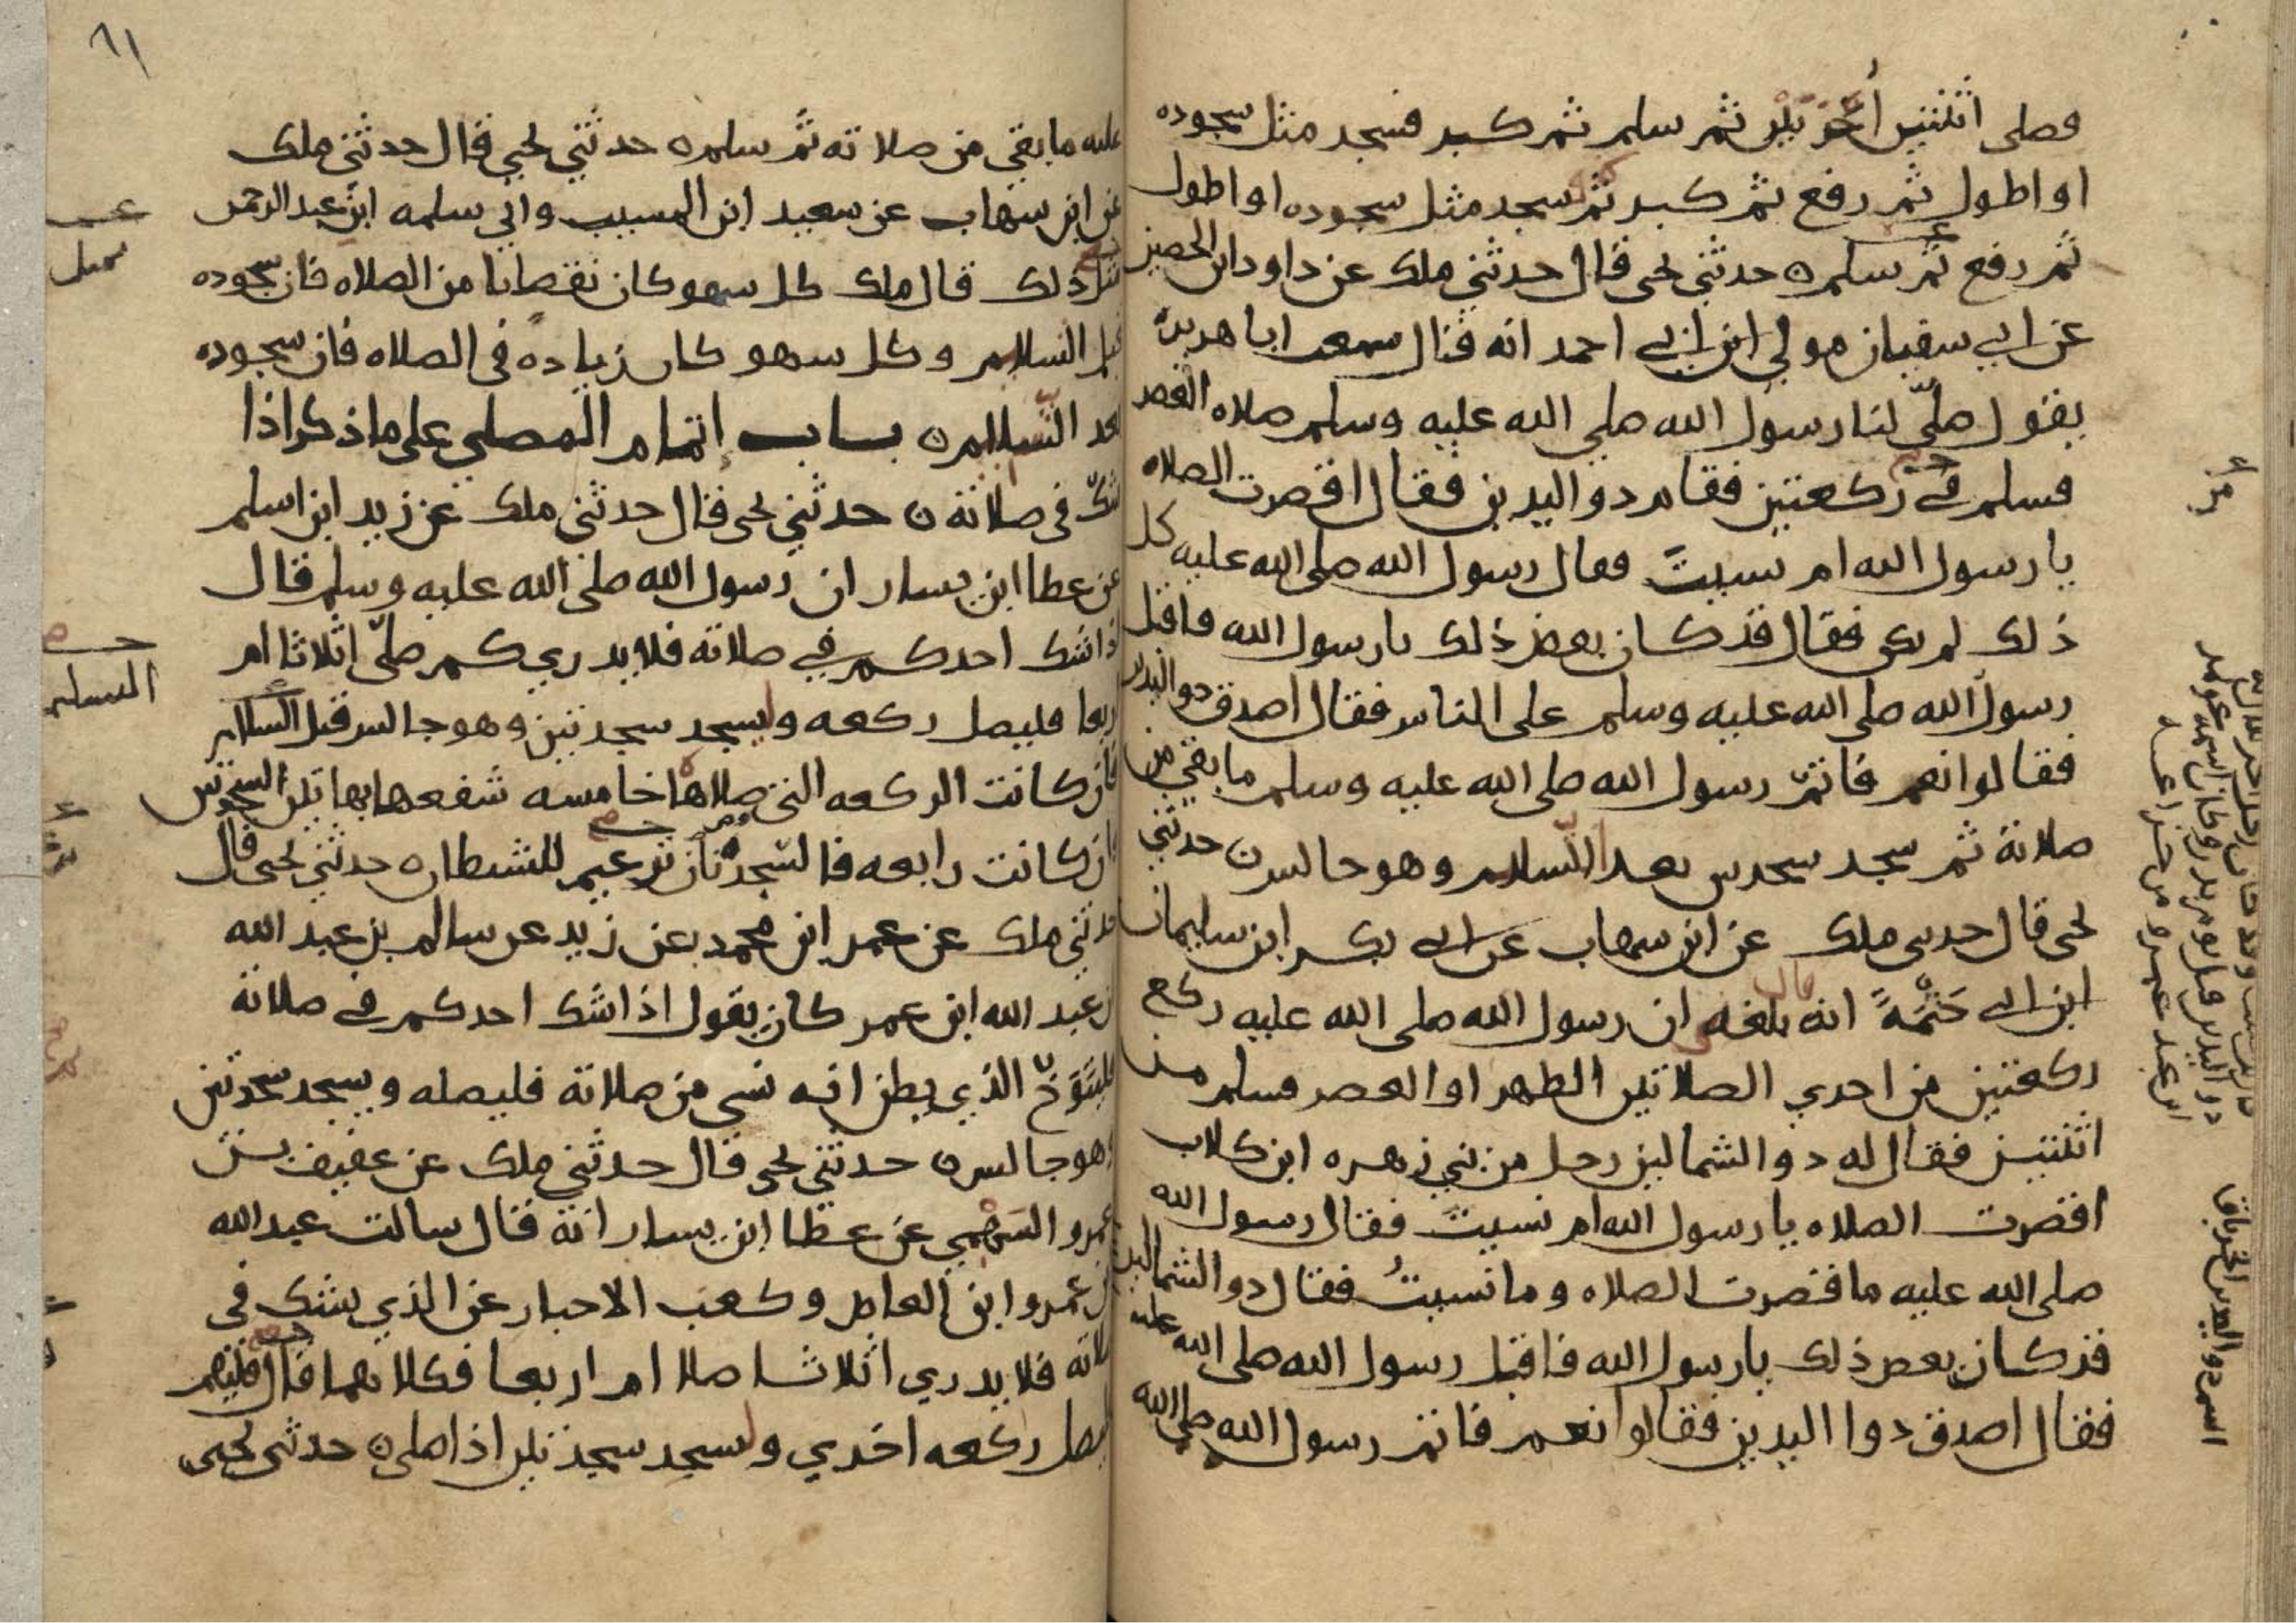 فصلى اثنتين أخريين ثم سلم ثم كبر فسجد مثل سجوده
او اطول ثم رفع ثم كبر ثم سجد مثل سجوده او اطول
ثم رفع ثم سلم ه حدثني يحيى قال حدثني ملك عن داود ابن الحصين
عن ابي سفيان مولي ابن ابي احمد انه قال سمعت ابا هريرة
يقول صلّى لنا رسول الله صلي الله عليه وسلم صلاه العصر
فسلم في ركعتين فقام ذو اليدين فقال اقصرت الصلاه
يا رسول الله ام نسيتَ فقال رسول الله صلى الله عليه كل
ذلك لم يكن فقال قد كان بعض ذلك يا رسول الله فاقبل
رسول الله صلى الله عليه وسلم على الناس فقال اصدق ذو اليدين
فقالوا نعم فاتمّ رسول الله صلى الله عليه وسلم ما بقي من
صلاته ثم سجد سجدتين بعد السّلام وهو جالس ه حدثني
يحيى قال حدثني ملك عن ابن شهاب عن ابي بكر ابن سليمان
ابن ابي حَثْمَةَ انه بلغه ان رسول الله صلى الله عليه ركع
ركعتين من احدي الصلاتين الظهر او العصر فسلم من
اثنتين فقال له ذو الشمالين رجل من بني زهره ابن كلاب
اقصرت الصلاه يا رسول الله ام نسيتَ فقال رسول الله
صلى الله عليه ما قصرت الصلاه وما نسيتُ فقال ذو الشمالين
قد كان بعض ذلك يا رسول الله فاقبل رسول الله صلى الله عليه
فقال اصدق ذوا اليدين فقالوا نعم فاتم رسول الله صلى الله
اسم ذو اليدين الخرباق
٦١
عليه ما بقي من صلاته ثمّ سلم ه حدثني يحيى قال حدثني ملك
عن ابن شهاب عن سعيد ابن المسيب وابي سلمه ابن عبد الرحمن
مثل ذلك قال ملك كل سهو كان نقصانا من الصلاه فان سجوده
قبل السلام وكل سهو كان زيادة في الصلاه فان سجوده
بعد السّلام ه باب إتمام المصلي على ما ذكر اذا
شكّ في صلاته ه حدثني يحيى قال حدثني ملك عن زيد ابن اسلم
عن عطا ابن يسار ان رسول الله صلى الله عليه وسلم قال
اذا شك احدكم في صلاته فلا يدري كم صلّى اثلاثا ام
اربعا فليصل ركعه وليسجد سجدتين وهو جالس قبل السلام
فان كانت الركعه التي صلاها خامسه شفعها بهاتين السجدتين
وان كانت رابعه فالسّجدتان ترغيم للشيطان ه حدثني يحيى قال
حدثني ملك عن عمر ابن محمد بن زيد عن سالم بن عبد الله
ان عبد الله ابن عمر كان يقول اذا شك احدكم في صلاته
فليتَوَخَّ الذي يظن انه نسي من صلاته فليصله ويسجد سجدتين
وهو جالس ه حدثني يحيى قال حدثني ملك عن عفيف بن
عمرو السَّهمي عن عطا ابن يسار انه قال سالت عبد الله
بن عمرو ابن العاص وكعب الاحبار عن الذي يشك في
صلاته فلا يدري اثلاثا صلا ام اربعا فكلاهما قال فليتم
ليصل ركعه اخري وليسجد سجدتين اذا صلى ه حدثني يحيى
التسليم